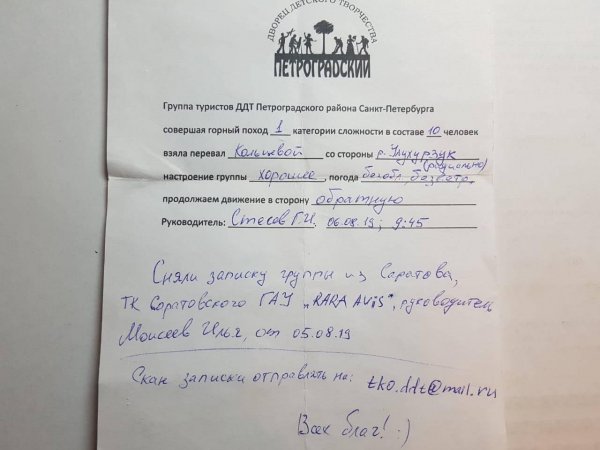 ДВОРЕЦ ДЕТСКОГО ТВОРЧЕСТВА
ПЕТРОГРАДСКИЙ
Группа туристов ДДТ Петроградского района Санкт-Петербурга
совершая горный поход 1 категории сложности в составе 10 человек
взяла перевал Кольцевой со стороны р. Улухурзук
(радиально)
настроение группы хорошее, погода безобл., безветр.,
продолжаем движение в сторону обратную
Руководитель: Стесов Г.И. 06.08.19; 9:45
Сняли записку группы из Саратова,
ТК Саратовского ГАУ „RARA AVIS", руководитель
Моисеев Илья, от 05.08.19
Скан записки отправлять на: tko.ddt@mail.ru
Всех благ! :)